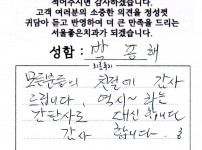 적어주시면 감사하겠습니다.
고객 여러분의 소중한 의견을 정성껏
귀담아 듣고 반영하여 더 큰 만족을 드리는
서울좋은치과가 되겠습니다.
성함 : 박 해
모든분들의 친절에 감사
드립니다, 역시~ 라는
간판사로 대신합니다
감사 합니다.